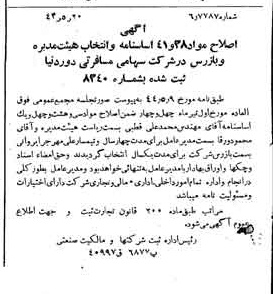 شماره ۶٫۷۷۸۷ ۲۰ر۵ر۴۳
آگهی
اصلاح مواد ۳۸و۴۱ اساسنامه وانتخاب هیئت مدیره
وبازرس در شرکت سهامی مسافرتی دور دنیا
ثبت شده بشماره ۸۳۴۰
طبق نامه مورخ ۴۴٫۵٫۹ به پیوست صورتجلسه مجمع عمومی فوق
العاده مورخ اول تیرماه چهار ضمن اصلاح مواد سی وهشت وچهل ویک
اساسنامه آقای مهندس محمدعلی قطبی بسمت ریاست هیئت مدیره وآقای
محمود ورقا بسمت مدیرعامل برای مدت چهار سال وتیمسار علی مهرجیراتی
بسمت بازرس شرکت برای مدت یکسال انتخاب گردیدند وحق امضاء اسناد
وچکها واوراق بهادار بامدیرعامل بتنهائی خواهد بود ومدیرعامل بطور کلی
در انجام واداره تمام امور داخلی،اداری،مالی وتجاری شرکت دارای اختیارات
ومسئولیت تامه میباشد
مراتب طبق ماده ۲۰۰ قانون تجارت ثبت و جهت اطلاع
عموم آگهی میشود
رئیس اداره ثبت شرکتها و مالکیت صنعتی
پ۶۸۷۷ ق۴۰۹۹۷